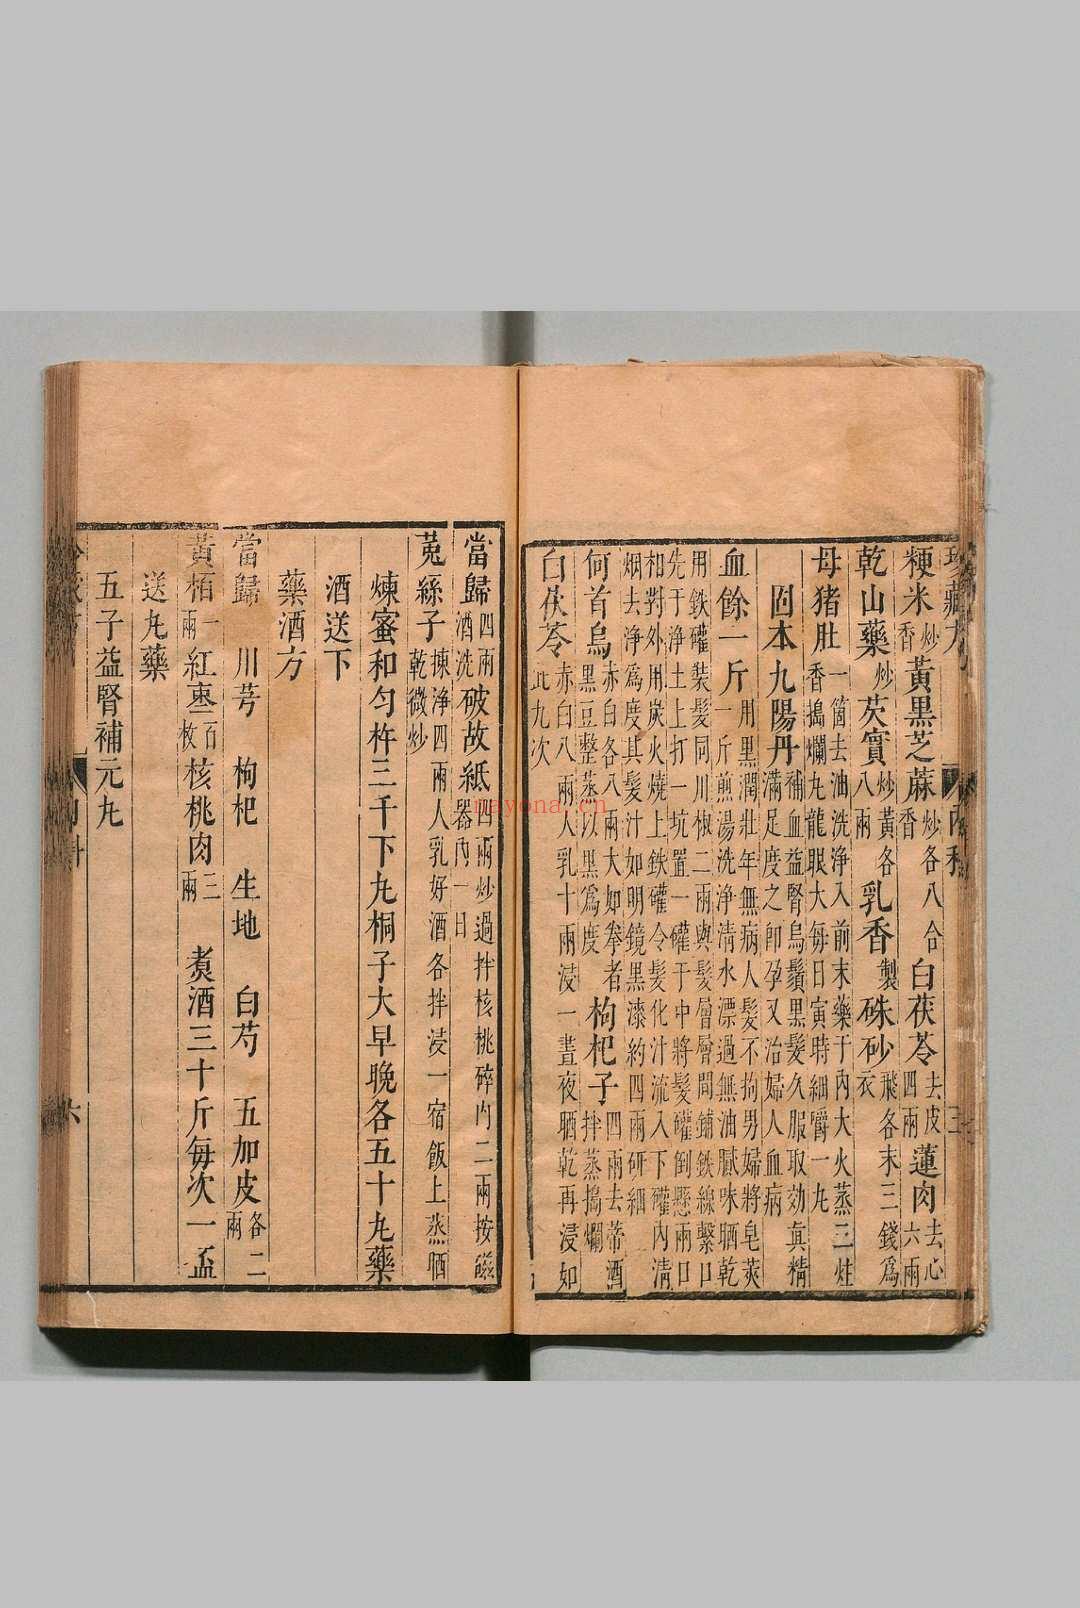 粳米炒香黃黑芝蔴炒香各八合白茯苓去皮四兩蓮肉去心六兩
乾山藥炒芡實炒黃各八兩乳香製硃砂飛各末三錢爲衣
母猪肚一箇去油洗淨入前末藥于內大火蒸三炷香搗爛丸龍眼大每日寅時細嚼一丸
固本九陽丹補血益腎烏鬚黑髮久服取効真精滿足度之卽孕又治婦人血病
血餘一斤用黑潤壯年無病人髮不拘男婦將皂莢一斤煎湯洗淨清水漂過無油膩味晒乾
用鉄礶裝髮同川椒二兩與髮層層間鋪鉄線繫口先于淨土上打一坑置一礶于中將髮礶倒懸兩口
和對外用炭火燒上鉄礶令髮化汁流入下礶內清烟去淨爲度其髮汁如明鏡黑漆約四兩研細
何首烏赤白各八兩大如拳者黑豆整蒸以黑爲度枸杞子四兩去蒂酒拌蒸搗爛
白茯苓赤白八兩人乳十兩浸一晝夜晒乾再浸如此九次
當歸四兩酒洗破故紙四兩炒過拌核桃碎肉二兩按磁器內一日
菟絲子揀淨四兩人乳好酒各拌浸一宿飯上蒸晒乾微炒
煉蜜和勻杵三千下丸桐子大早晚各五十丸藥
酒送下
藥酒方
當歸 川芎 枸杞 生地 白芍 五加皮各二兩
黃栢一兩紅棗一百枚核桃肉三兩 煑酒三十斤每次一盃
送丸藥
五子益腎補元丸
nayona.cn